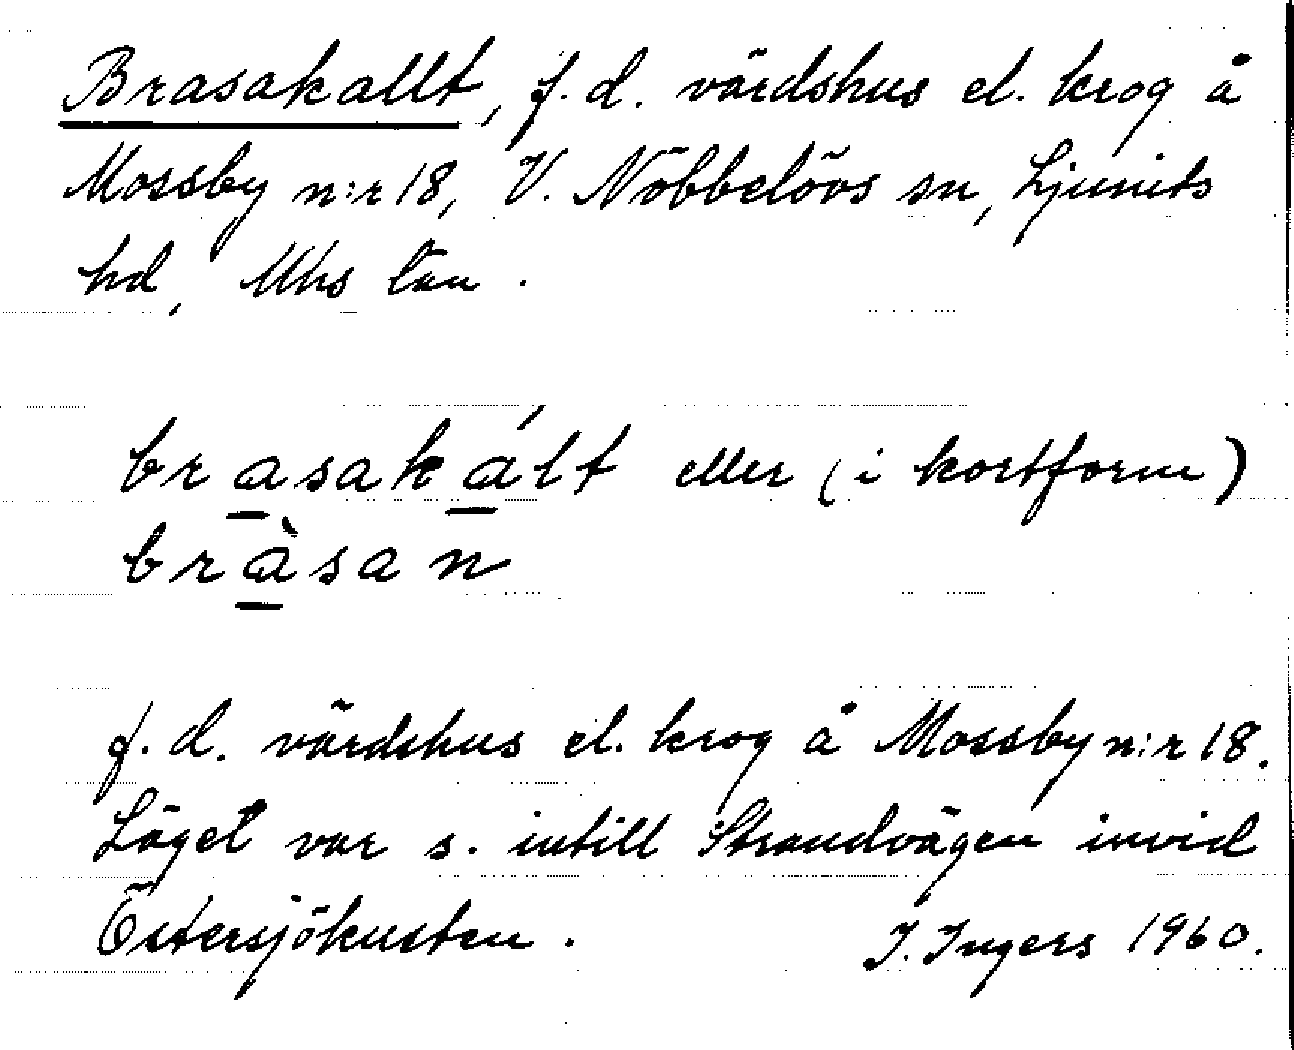 Brasakallt, f.d. värdshus el. krog å
Mossby n:r 18, V. Nöbbelövs sn, Ljunits
hd, Mhs län.
brasakált eller (i kortform)
bràsan
f.d. värdshus el. krog å Mossby n:r 18.
Läget var s. intill Strandvägen invid
Östersjökusten. I. Ingers 1960.